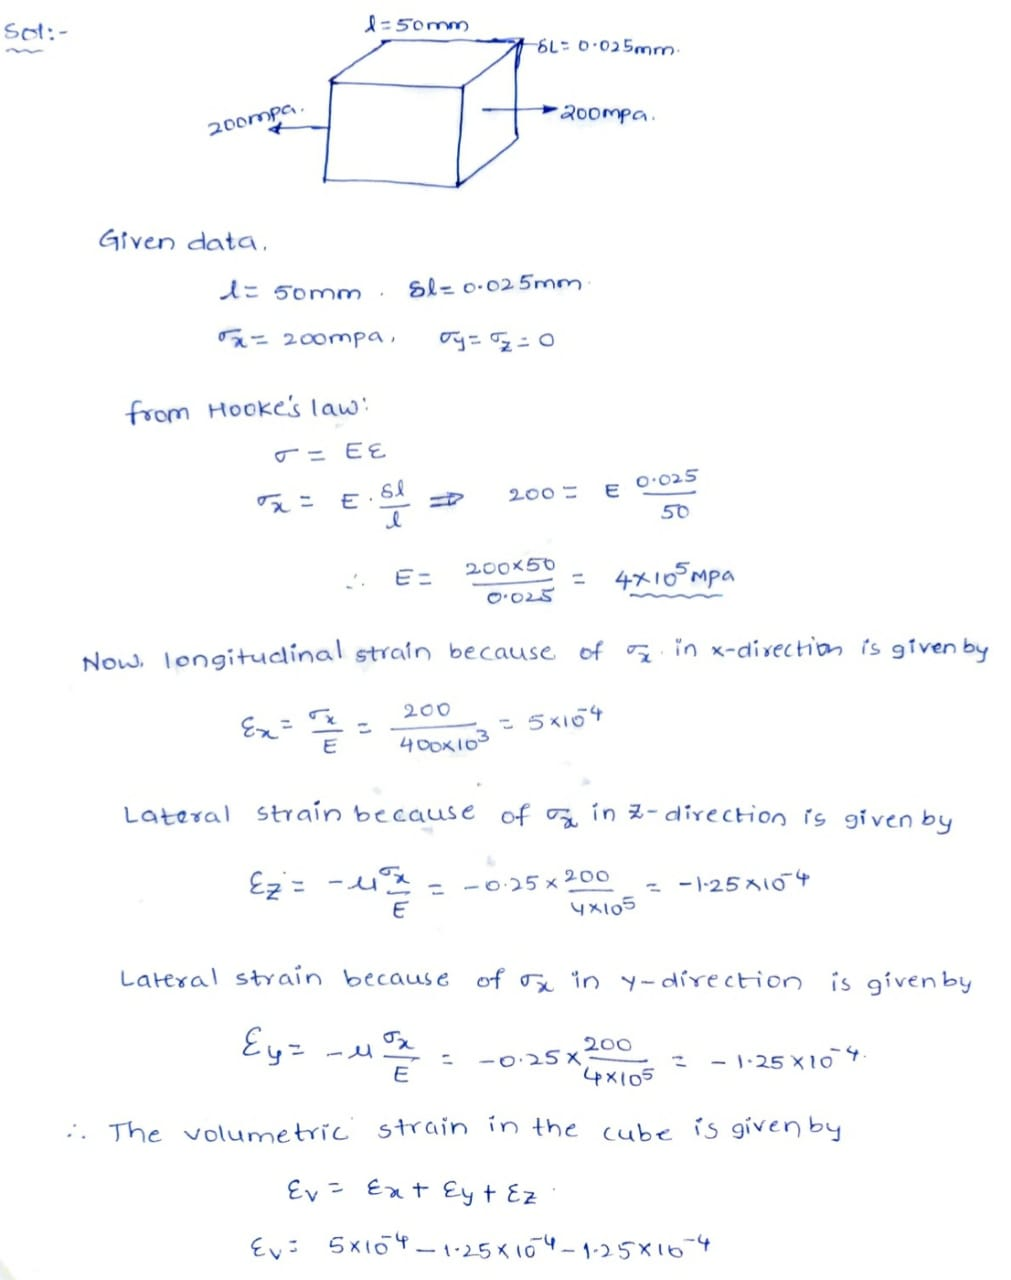 Sol:-
l=50mm
δL= 0.025mm.
200mpa.
200mpa.
Given data.
l= 50mm . δl= 0.025mm.
σx= 200mpa, σy= σz= 0
from Hooke's law:
σ = Eε
σx = E. δl/l ⇒ 200 = E 0.025/50
∴ E= 200×50/0.025 = 4×10⁵ MPa
Now, longitudinal strain because of σx in x-direction is given by
εx= σx/E = 200/400×10³ = 5×10⁻⁴
Lateral strain because of σx in z-direction is given by
εz= -μ σx/E = -0.25× 200/4×10⁵ = -1.25×10⁻⁴
Lateral strain because of σx in y-direction is given by
εy= -μ σx/E = -0.25× 200/4×10⁵ = -1.25×10⁻⁴.
∴ The volumetric strain in the cube is given by
εv= εx+ εy+ εz
εv= 5×10⁻⁴ - 1.25×10⁻⁴ - 1.25×10⁻⁴